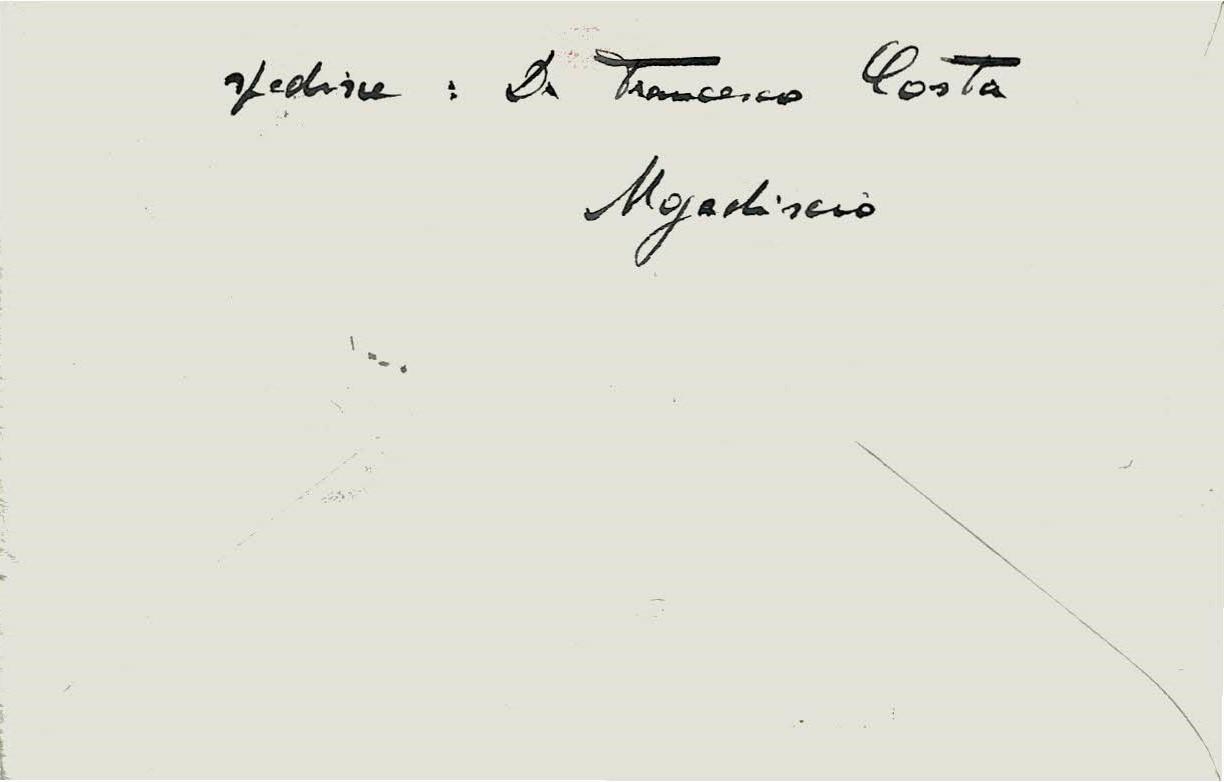 spedisce : Dr Francesco Costa
Mogadiscio